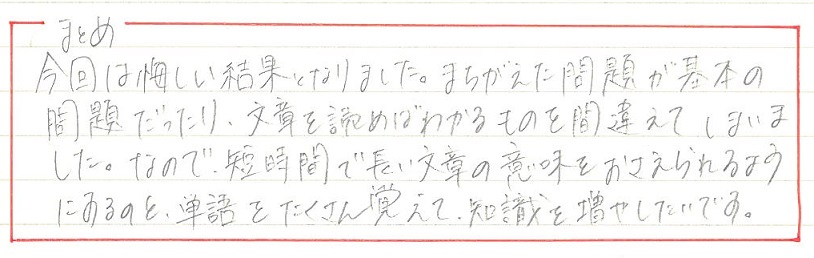 まとめ
今回は悔しい結果となりました。まちがえた問題が基本の
問題だったり、文章を読めばわかるものを間違えてしまいま
した。なので、短時間で長い文章の意味をおさえられるよう
にするのと、単語をたくさん覚えて、知識を増やしたいです。